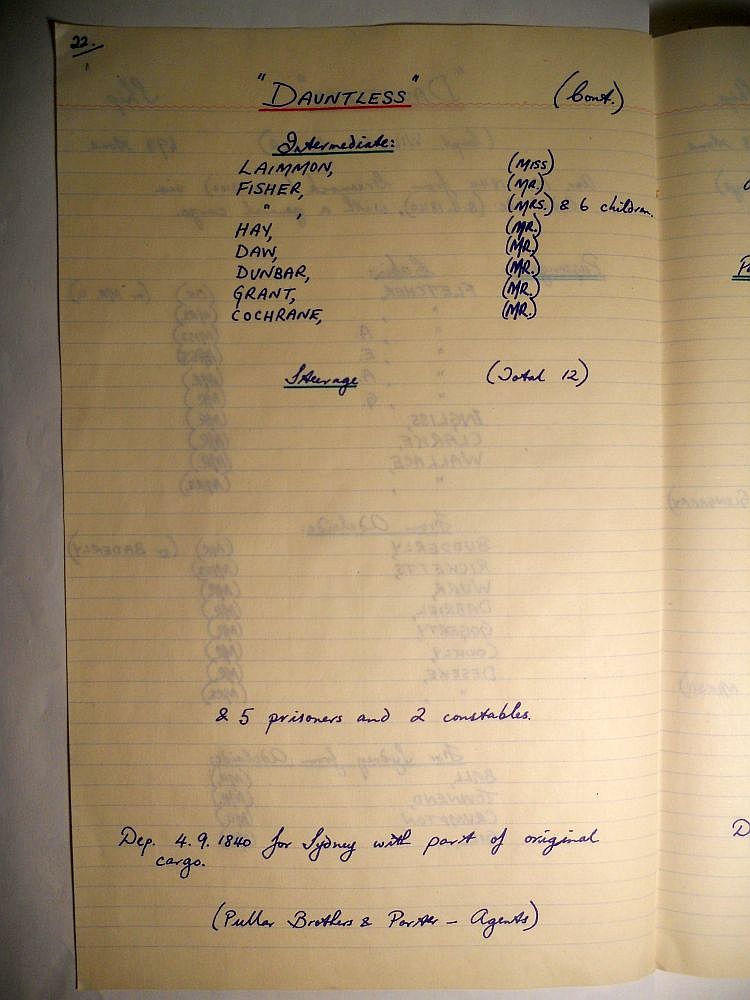 22.
"DAUNTLESS" (Cont.)
Intermediate:
LAIMMON, (MISS)
FISHER, (MR)
" , (MRS.) & 6 children.
HAY, (MR.)
DAW, (MR)
DUNBAR, (MR.)
GRANT, (MR.)
COCHRANE, (MR.)
Steerage (Total 12)
& 5 prisoners and 2 constables.
Dep. 4.9.1840 for Sydney with part of original
cargo.
(Pullar Brothers & Porter - Agents)